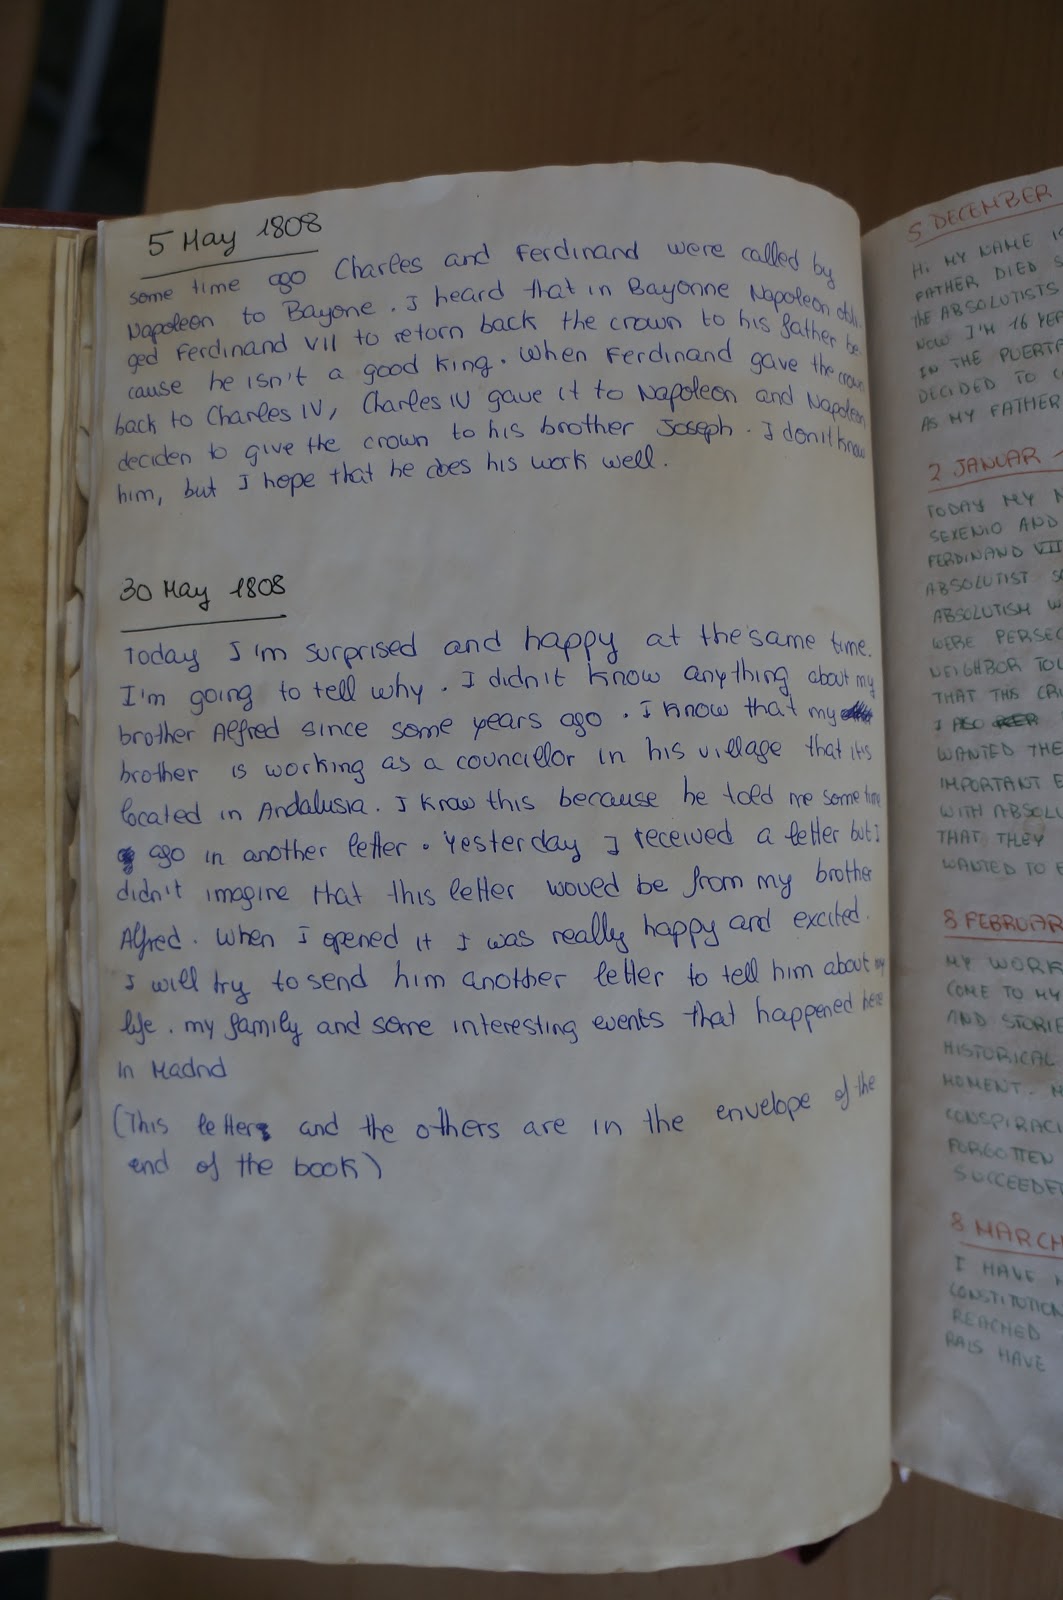 5 May 1808
some time ago Charles and Ferdinand were called by
Napoleon to Bayone. I heard that in Bayonne Napoleon obli-
ged Ferdinand VII to retorn back the crown to his father be-
cause he isn't a good King. When Ferdinand gave the crown
back to Charles IV, Charles IV gave it to Napoleon and Napoleon
deciden to give the crown to his brother Joseph. I don't know
him, but I hope that he does his work well.
30 May 1808
Today I'm surprised and happy at the same time.
I'm going to tell why. I didn't know anything about my
brother Alfred since some years ago. I know that my
brother is working as a councillor in his village that it's
located in Andalusia. I know this because he told me some time
ago in another letter. Yesterday I received a letter but I
didn't imagine that this letter would be from my brother
Alfred. When I opened it I was really happy and excited.
I will try to send him another letter to tell him about my
life. my family and some interesting events that happened here
in Madrid
(This letters and the others are in the envelope of the
end of the book)
5 DECEMBER
Hi MY NAME IS
FATHER DIED
THE ABSOLUTISTS
NOW I'M 16 YEA
IN THE PUERTA
DECIDED TO
AS MY FATHER
2 JANUAR
TODAY MY
SEXENIO AND
FERDINAND VII
ABSOLUTIST
ABSOLUTISM
WERE PERSEC
NEIGHBOR TOL
THAT THIS CRI
I ALSO
WANTED THE
IMPORTANT
WITH ABSOLU
THAT THEY
WANTED TO
8 FEBRUAR
MY WORK
COME TO MY
AND STORIE
HISTORICAL
MOMENT.
CONSPIRACI
FORGOTTEN
SUCCEEDE
8 MARCH
I HAVE
CONSTITUTION
REACHED
RALS HAVE